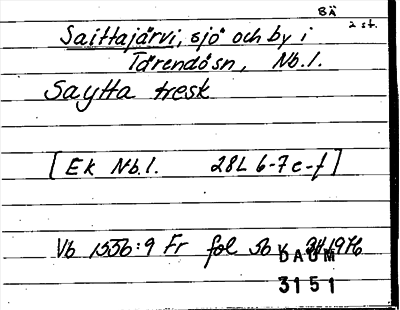 BÄ
2 st.
Saittajärvi, sjö och by i
Tärendösn, Nb.l.
Saytta tresk
[Ek Nb.l. 28L 6-7 e-f]
Vb 1556:9 Fr fol 56 v 1976
DAUM
3151